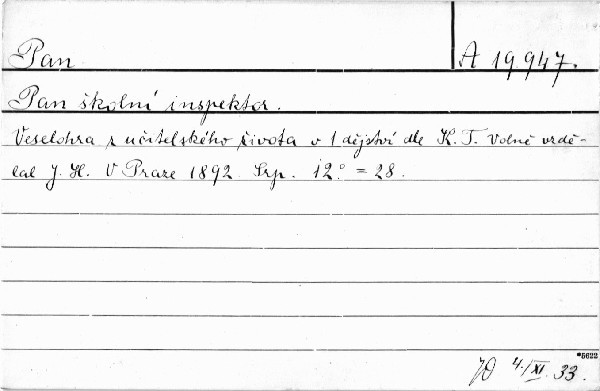 Pan A 19.947.
Pan školní inspektor.
Veselohra z učitelského života v 1 dějství dle K. T. volně vzdě-
lal J. H. V Praze 1892. Srp. 12° = 28.
*5622
4./XI. 33.